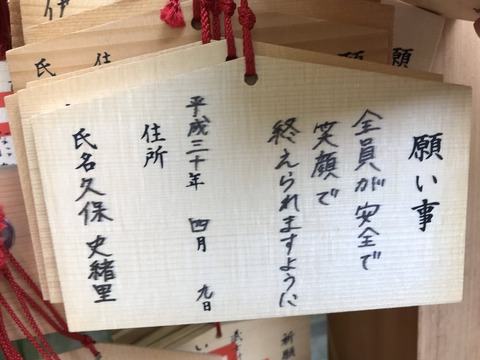 願い事
全員が安全で
笑顔で
終えられますように
平成三十年 四月 九日
住所
氏名 久保 史緒里
氏
住
住所
願
願
伊
祈願